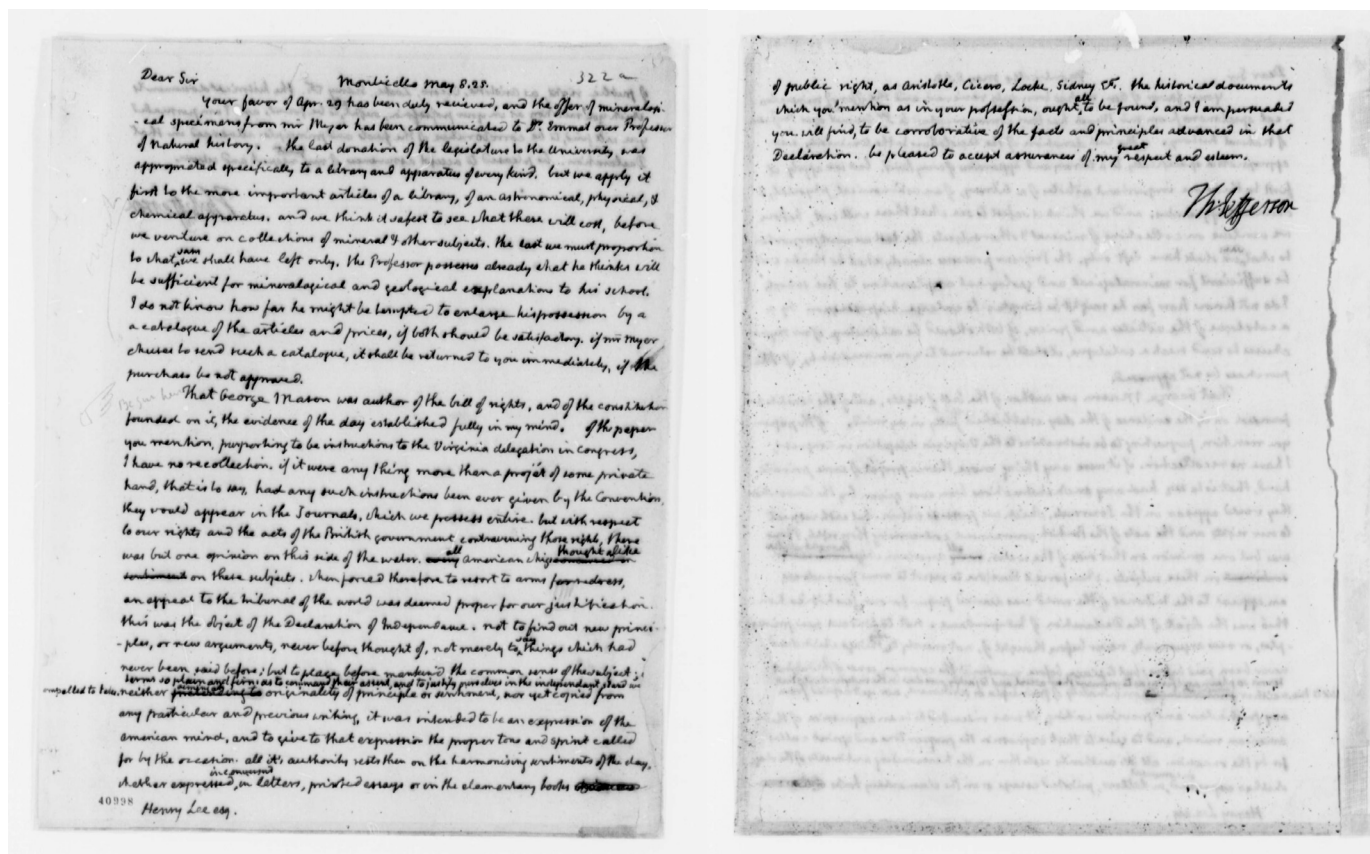 322a
Dear Sir Monticello May 8. 25.
Your favor of Apr. 29 has been duly recieved, and the offer of mineralogi-
-cal specimens from mr Myer has been communicated to Dr. Emmet our Professor
of Natural history. the last donation of the legislature to the University was
appropriated specifically to a library and apparatus of every kind. but we apply it
first to the more important articles of a library, of an astronomical, physical, &
chemical apparatus. and we think it safest to see what these will cost, before
we venture on collections of mineral & other subjects. the last we must proportion
to what sum we shall have left only. the Professor possesses already what he thinks will
be sufficient for mineralogical and geological explanations to his school.
I do not know how far he might be tempted to enlarge his possession by a
a catalogue of the articles and prices, if both should be satisfactory. if mr myer
chuses to send such a catalogue, it shall be returned to you immediately, if the
purchase be not approved.
That George Mason was author of the bill of rights, and of the constitution
founded on it, the evidence of the day established fully in my mind. of the paper
you mention, purporting to be instructions to the Virginia delegation in Congress,
I have no recollection. if it were any thing more than a projét of some private
hand, that is to say, had any such instructions been ever given by the Convention,
they would appear in the Journals, which we possess entire. but with respect
to our rights and the acts of the British government contravening those rights, there
was but one opinion on this side of the water. all American whigs thought alike
on these subjects. when forced therefore to resort to arms for redress,
an appeal to the tribunal of the world was deemed proper for our justification.
this was the object of the Declaration of Independance. not to find out new princi-
-ples, or new arguments, never before thought of, not merely to say things which had
never been said before; but to place before mankind the common sense of the subject; in
terms so plain and firm, as to command their assent, and to justify ourselves in the independant stand we
compelled to take. neither aiming at originality of principle or sentiment, nor yet copied from
any particular and previous writing, it was intended to be an expression of the
american mind, and to give to that expression the proper tone and spirit called
for by the occasion. all it's authority rests then on the harmonising sentiments of the day,
whether expressed, in conversns in letters, printed essays or in the elementary books
40998
Henry Lee esq.
of public right, as Aristotle, Cicero, Locke, Sidney Etc. the historical documents
which you mention as in your possession, ought all to be found, and I am persuaded
you will find, to be corroborative of the facts and principles advanced in that
Declaration. be pleased to accept assurances of my great respect and esteem.
Th: Jefferson